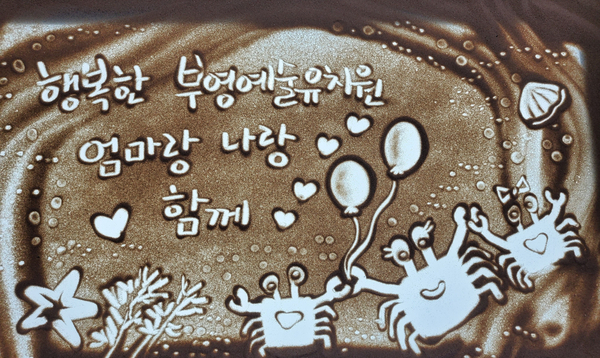 행복한 부영예술유치원
엄마랑 나랑
함께